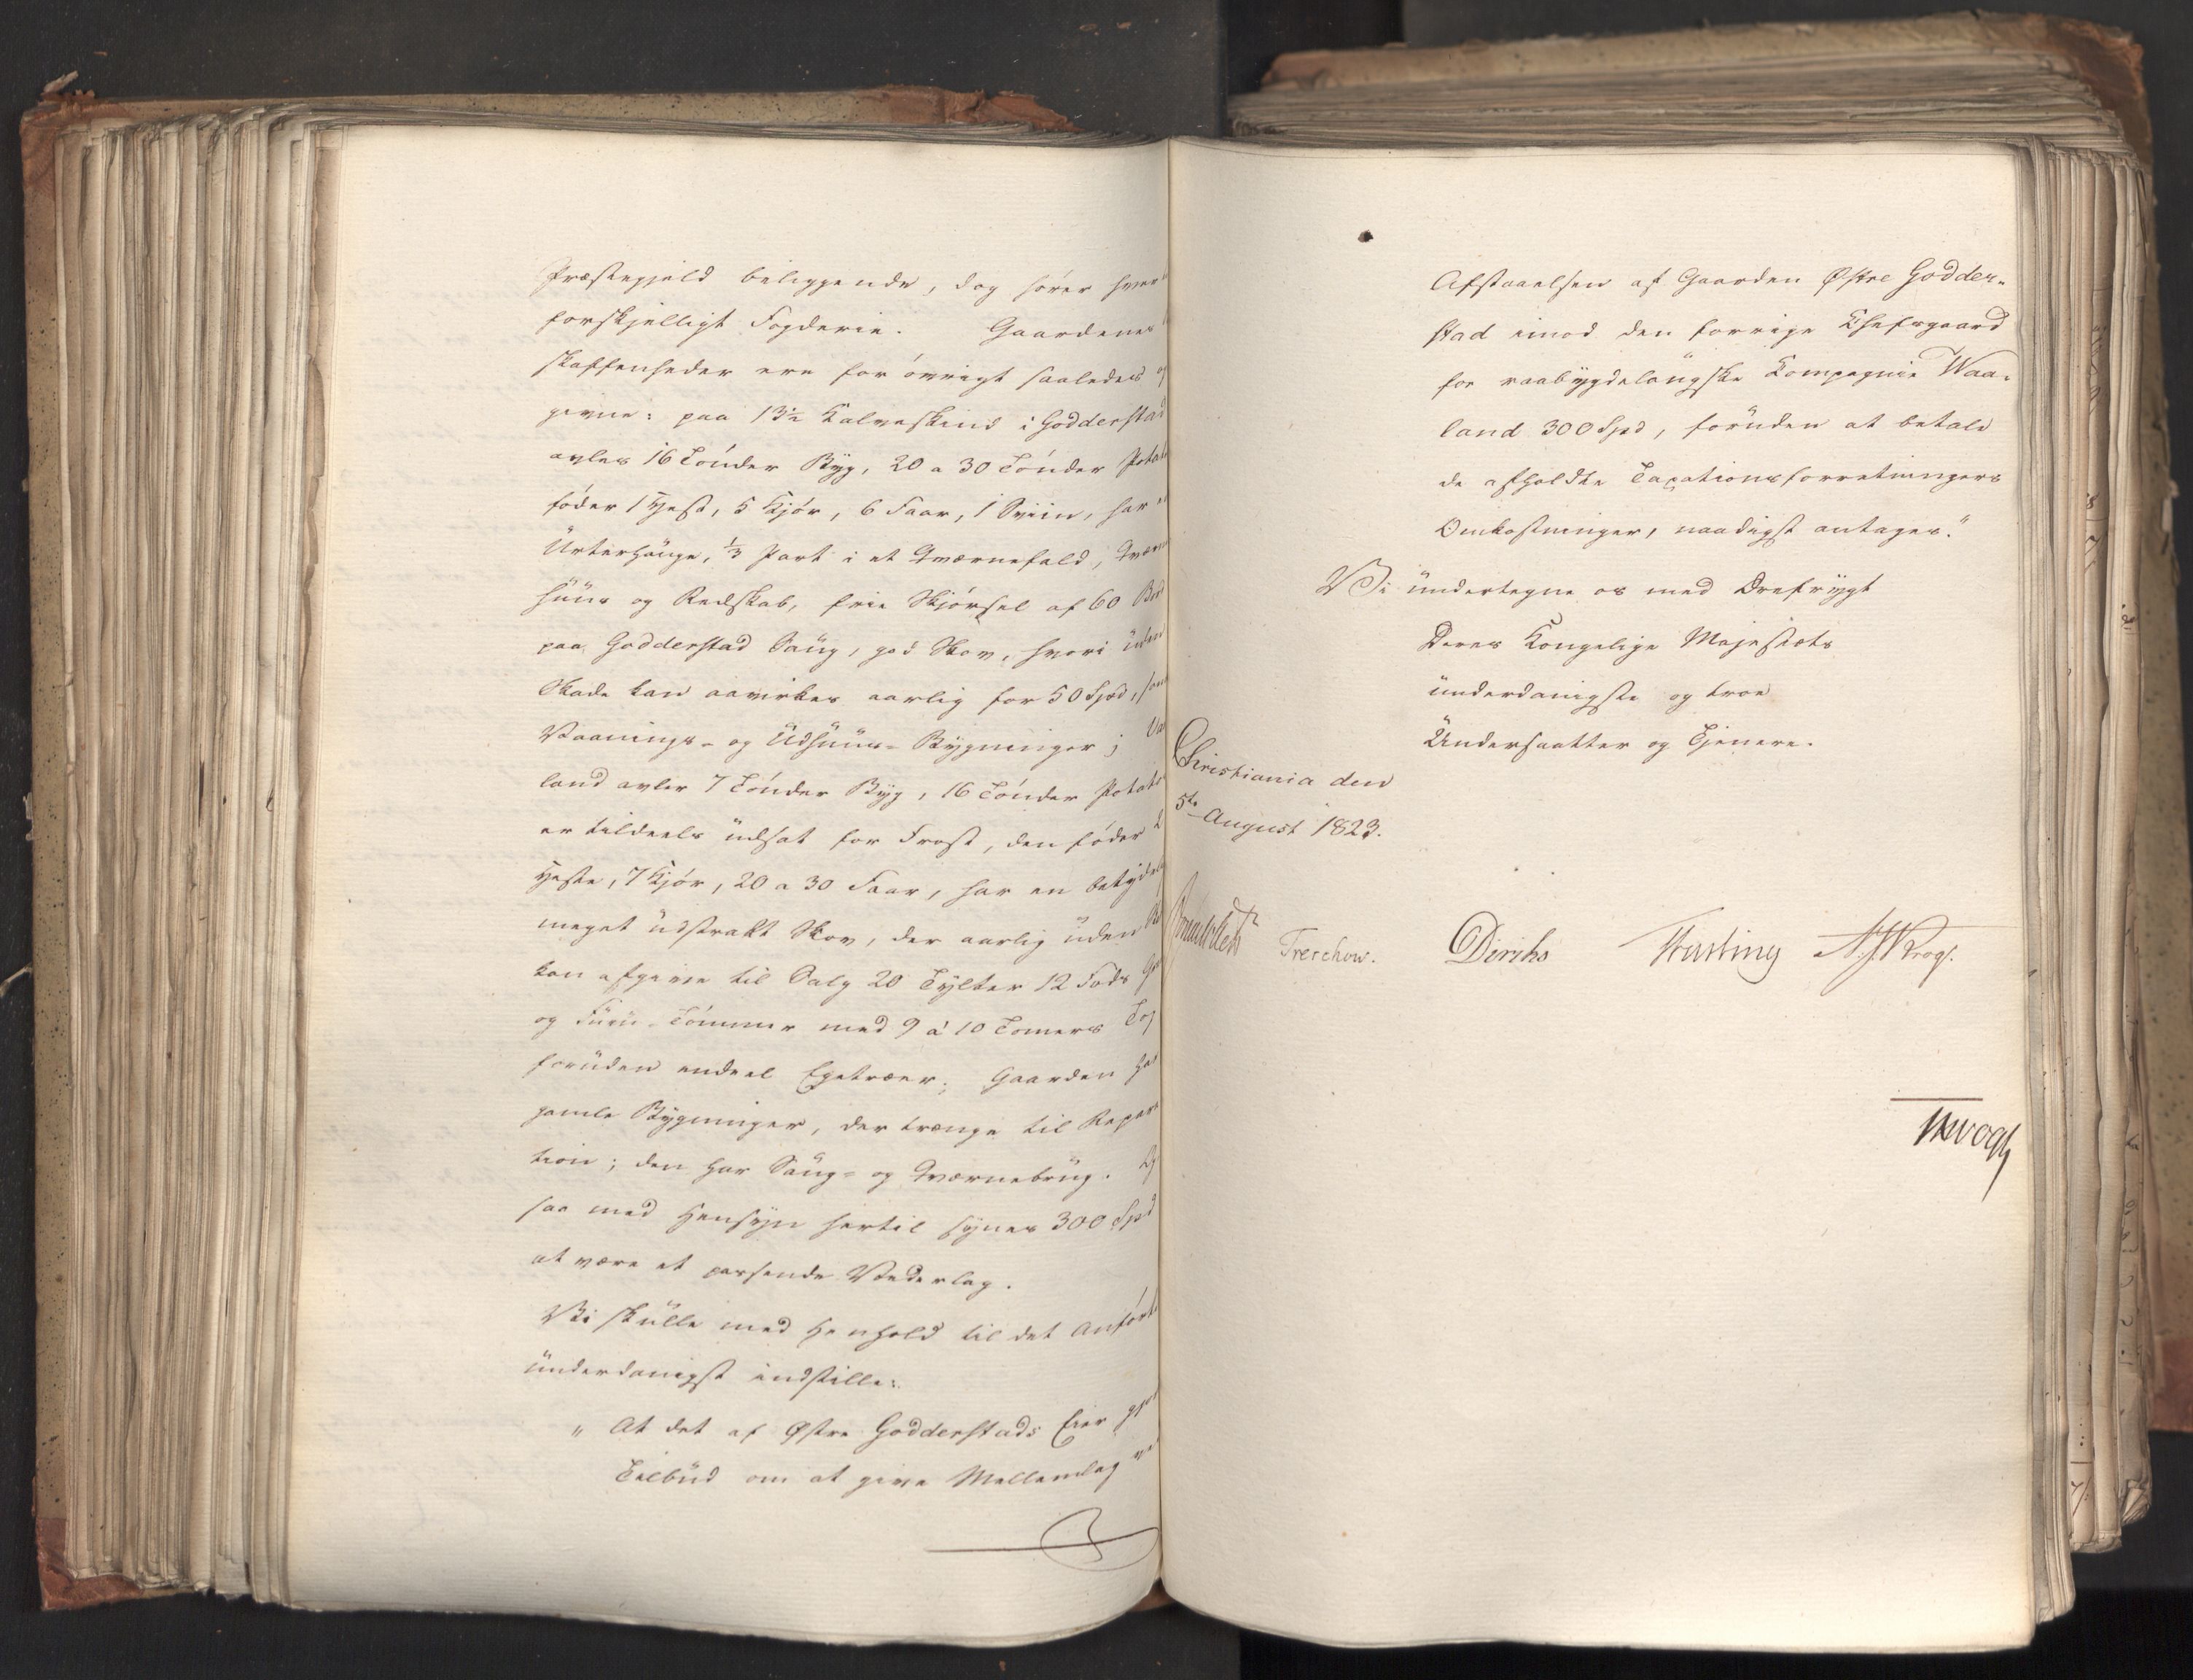 Præstegjeld beliggende, dog hører hver
forskjelligt Fogderie. Gaardenes
skaffenheder ere for øvrigt saaledes
givne: paa 13½ Kalveskind i Godderstad
avles 16 Tønder Byg, 20 a 30 Tønder Potat
føder 1 Hest, 5 Kjør, 6 Faar, 1 Sviin, har
Urterhauge, ⅓ Part i et Qværnefald, Qværn
huus og Redskab, frie Skjørsel af 60 Bord
paa Godderstad Saug, god Skov, hvori uden
Skade kan aavirkes aarlig for 50 Spd, samt
Vaanings- og Udhuus-Bygninger; Va
land avler 7 Tønder Byg, 16 Tønder Potat
er tildeels udsat for Frost, den føder 2
Heste, 7 Kjør, 20 a 30 Faar, har en betydelig
meget udstrakt Skov, der aarlig uden
kan afgive til Salg 20 Tylter 12 Fods Gran
og Furu-Tømmer med 9 à 10 Tomers Top
foruden endeel Egetræer; Gaarden har
gamle Bygninger, der trænge til Repara
tion; den har Saug- og Qværnebrug.
saa med Hensyn hertil synes 300 Spd
at være et passende Vederlag.
Vi skulle med Henhold til det Anførte
underdanigst indstille:
"At det af Østre Godderstads Eier gjorte
Tilbud om at give Mellemlag ved
Afstaaelsen af Gaarden Østre Godder-
stad imod den forrige Chefsgaard
for raabygdelaugske Compagnie Waa-
land 300 Spd, foruden at betale
de afholdte Taxationsforretningers
Omkostninger, naadigst antages."
Vi undertegne os med Ærefrygt
Deres Kongelige Majestæts
underdanigste og troe
Undersaatter og Tjenere.
Christiania den
5te August 1823.
Sommerfeldt Treschow. Diriks Fasting A. J. Krog.
JHVogt